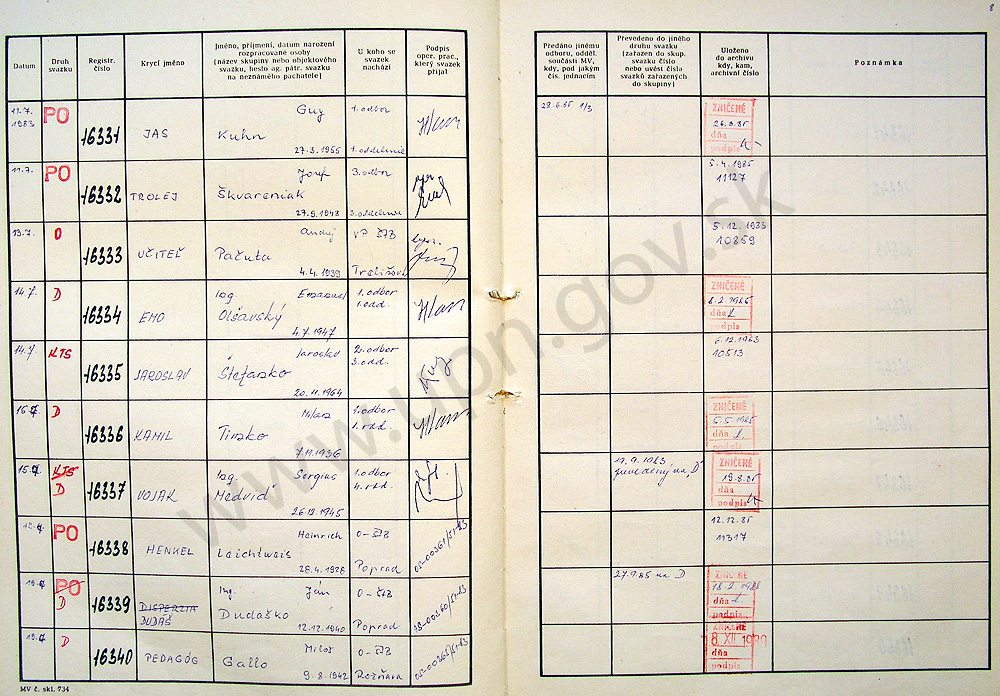 8
Datum
Druh
svazku
Registr.
číslo
Krycí jméno
Jméno, příjmení, datum narození
rozpracované osoby
(název skupiny nebo objektového
svazku, heslo ag. pátr. svazku
na neznámého pachatele)
U koho se
svazek
nachází
Podpis
oper. prac.,
který svazek
přijal
Předáno jinému
odboru, odděl.
součásti MV,
kdy, pod jakým
čís. jednacím
Převedeno do jiného
druhu svazku
(zařazen do skup.
svazku číslo
nebo uvést čísla
svazků zařazených
do skupiny)
Uloženo
do archivu
kdy, kam,
archivní číslo
Poznámka
11.7.
1983
PO
16331
JAS
Guy
Kuhn
27.3.1955
1. odbor
1. oddelenie
29.6.85 1/3
ZNIČENÉ
26.8.85
dňa
podpis
11.7.
PO
16332
TROLEJ
Jozef
Škvareniak
27.9.1948
3. odbor
3. oddelenie
5.4.1985
11127
13.7.
O
16333
UČITEĽ
Andrej
Pačuta
4.4.1939
VP ŠTB
Trebišov
5.12.1983
10859
14.7.
D
16334
EMO
Ing. Emanuel
Olšavský
4.7.1947
1. odbor
1. odd.
ZNIČENÉ
8.2.1986
dňa
podpis
14.7.
KTS
16335
JAROSLAV
Jaroslav
Štefanko
20.11.1964
2. odbor
3. odd.
6.12.1983
10813
D
16336
KAMIL
Milan
Timko
7.11.1936
1. odbor
1. odd.
ZNIČENÉ
5.5.1985
dňa
podpis
KTS
D
16337
VOJAK
Ing. Sergius
Medviď
26.12.1945
1. odbor
4. odd.
19.9.1983
prevedený na "D"
ZNIČENÉ
19.8.85
dňa
podpis
PO
16338
HENKEL
Heinrich
Leichtweis
28.4.1928
O-ŠTB
Poprad
12.12.85
11317
PO
D
16339
DISPERZIA
DUDÁŠ
Ing. Ján
Dudaško
12.12.1940
O-ŠTB
Poprad
27.9.85 na D
ZNIČENÉ
18.2.1986
dňa
podpis
D
16340
PEDAGÓG
Miloš
Gallo
9.8.1942
O-ŠTB
Rožňava
ZNIČENÉ
8.XII.1989
dňa
podpis
MV č. skl. 734
www.upn.gov.sk